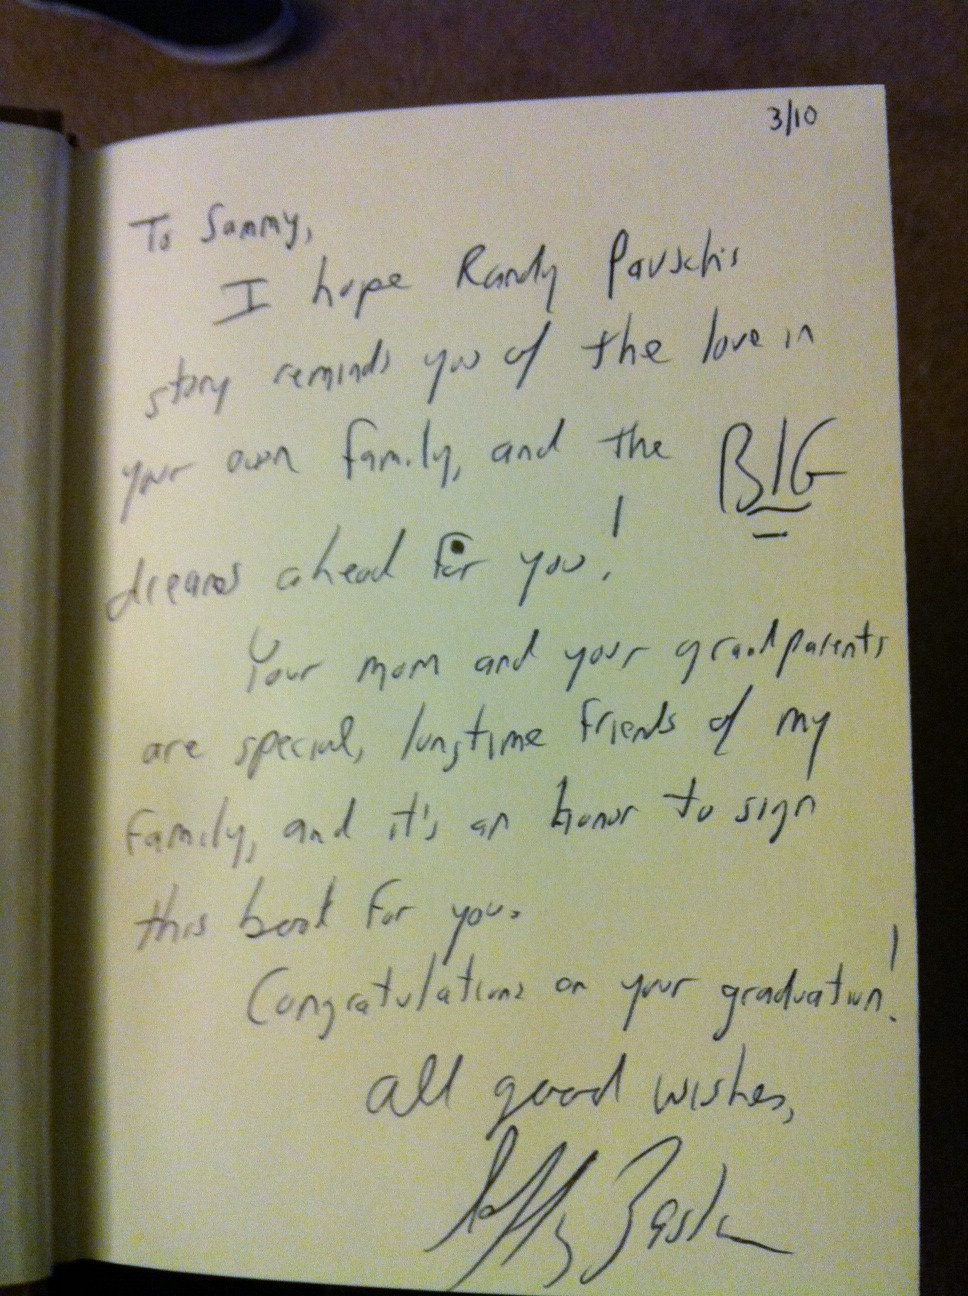 3/10
To Sammy,
I hope Randy Pausch's
story reminds you of the love in
your own family, and the BIG
dreams ahead for you!
Your mom and your grandparents
are special, longtime friends of my
family, and it's an honor to sign
this book for you.
Congratulations on your graduation!
All good wishes,
Jeffrey Zaslow